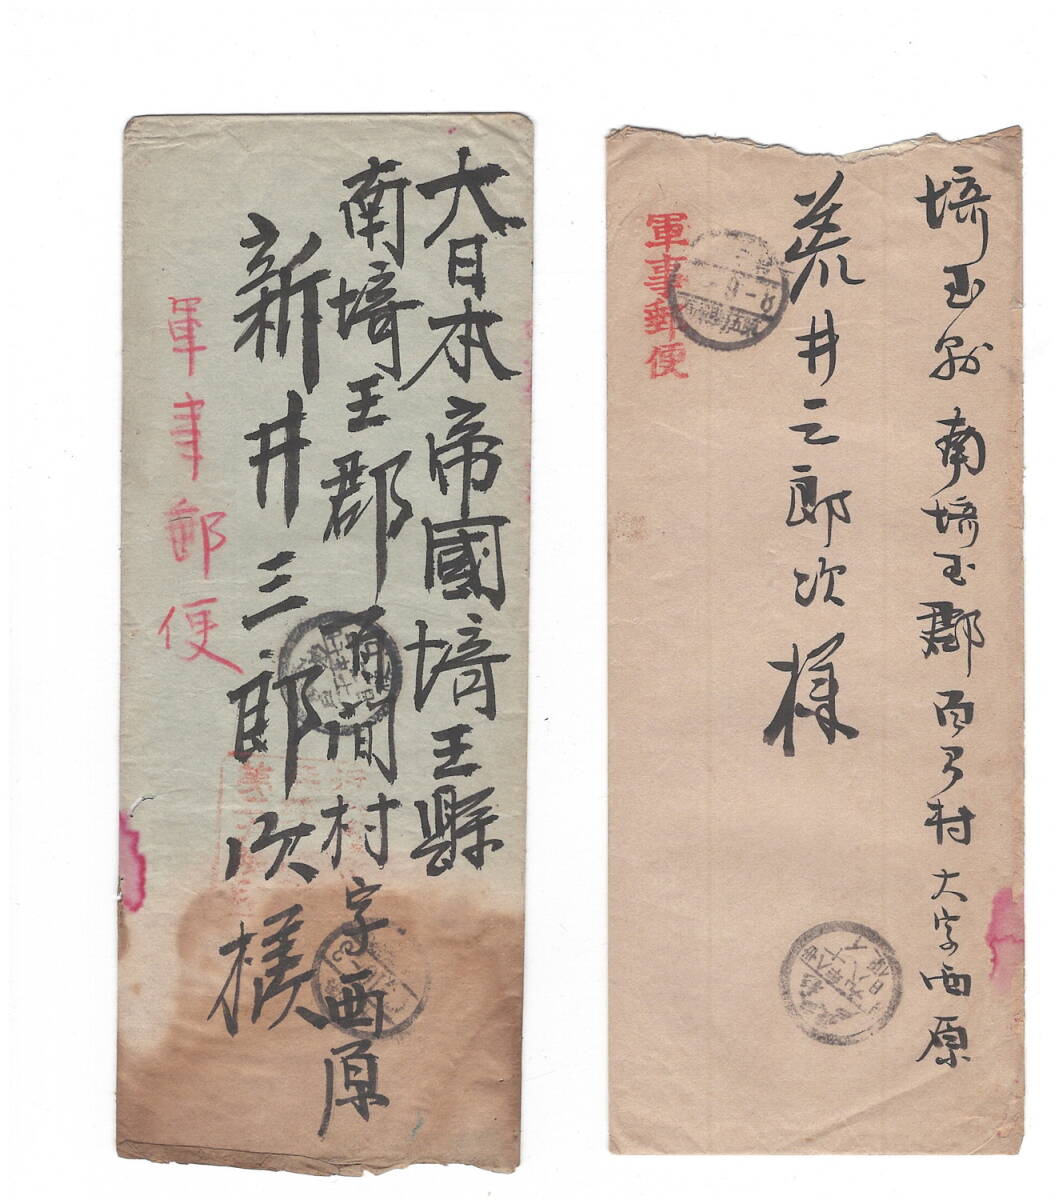 大日本帝國埼玉縣
南埼玉郡百間村字西原
新井三郎次様
軍事郵便
埼玉縣南埼玉郡百间村大字西原
荒井三郎次様
軍事郵便